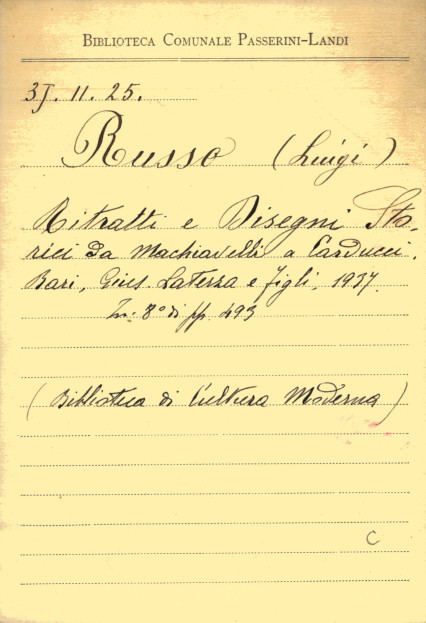 BIBLIOTECA COMUNALE PASSERINI-LANDI
3J. 11. 25.
Russo (Luigi)
Ritratti e Disegni Sto,
rici Da Machiavelli a Carducci.
Bari, Gius. Laterza e figli, 1937
In: 8° di pp. 493
(Biblioteca di Cultura Moderna)
C